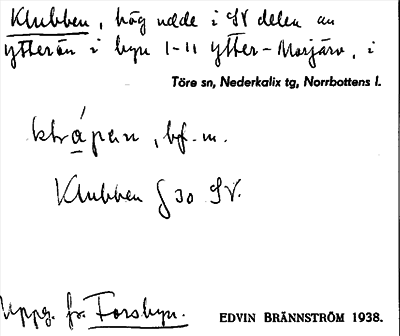 Klubben, hög udde i SV delen av
ytterön i byn 1-11 Ytter-Morjärv, i
Töre sn, Nederkalix tg, Norrbottens l.
bf. m.
Klubben § 30 SV.
Uppg. fr. Forsbyn.
EDVIN BRÄNNSTRÖM 1938.